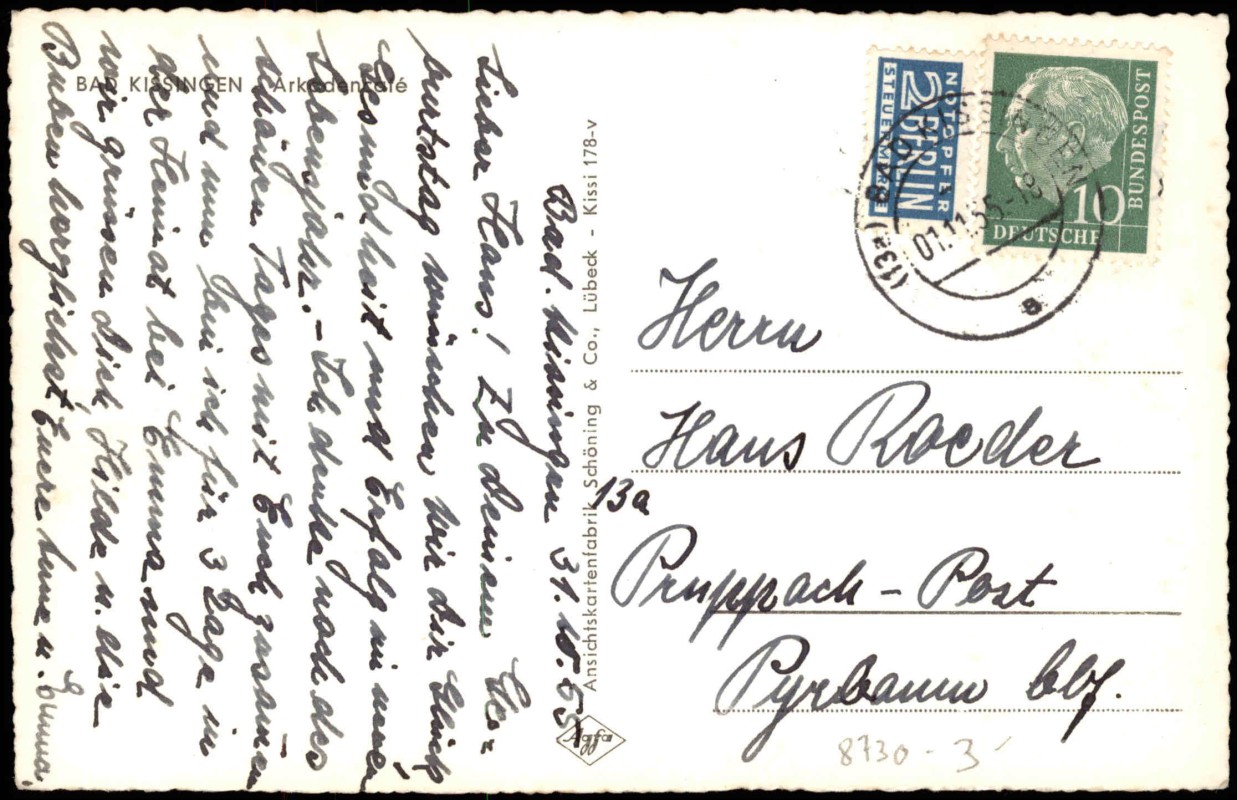 BAD KISSINGEN - Arkadencafé
Bad. Kissingen 31.10.55
Lieber Hans! Zu deinem Ge=
burtstag wünschen wir dir Glück
Gesundheit und Erfolg im neuen
Lebensjahr. – Ich denke noch des
schönen Tages mit Euch zusammen
und nun bin ich für 3 Tage in
der Heimat bei Emma und
wir grüssen dich, Hilde u. die
Buben herzlichst, Euere Anne u. Emma.
Ansichtskartenfabrik Schöning & Co., Lübeck - Kissi 178-v
Agfa
NOTOPFER
2 BERLIN
STEUERMARKE
DEUTSCHE
BUNDESPOST
10
(13a) BAD KISSINGEN
01.11.55-18
a
Herrn
Hans Roeder
13a
Pruppach - Post
Pyrbaum
8730 - 3